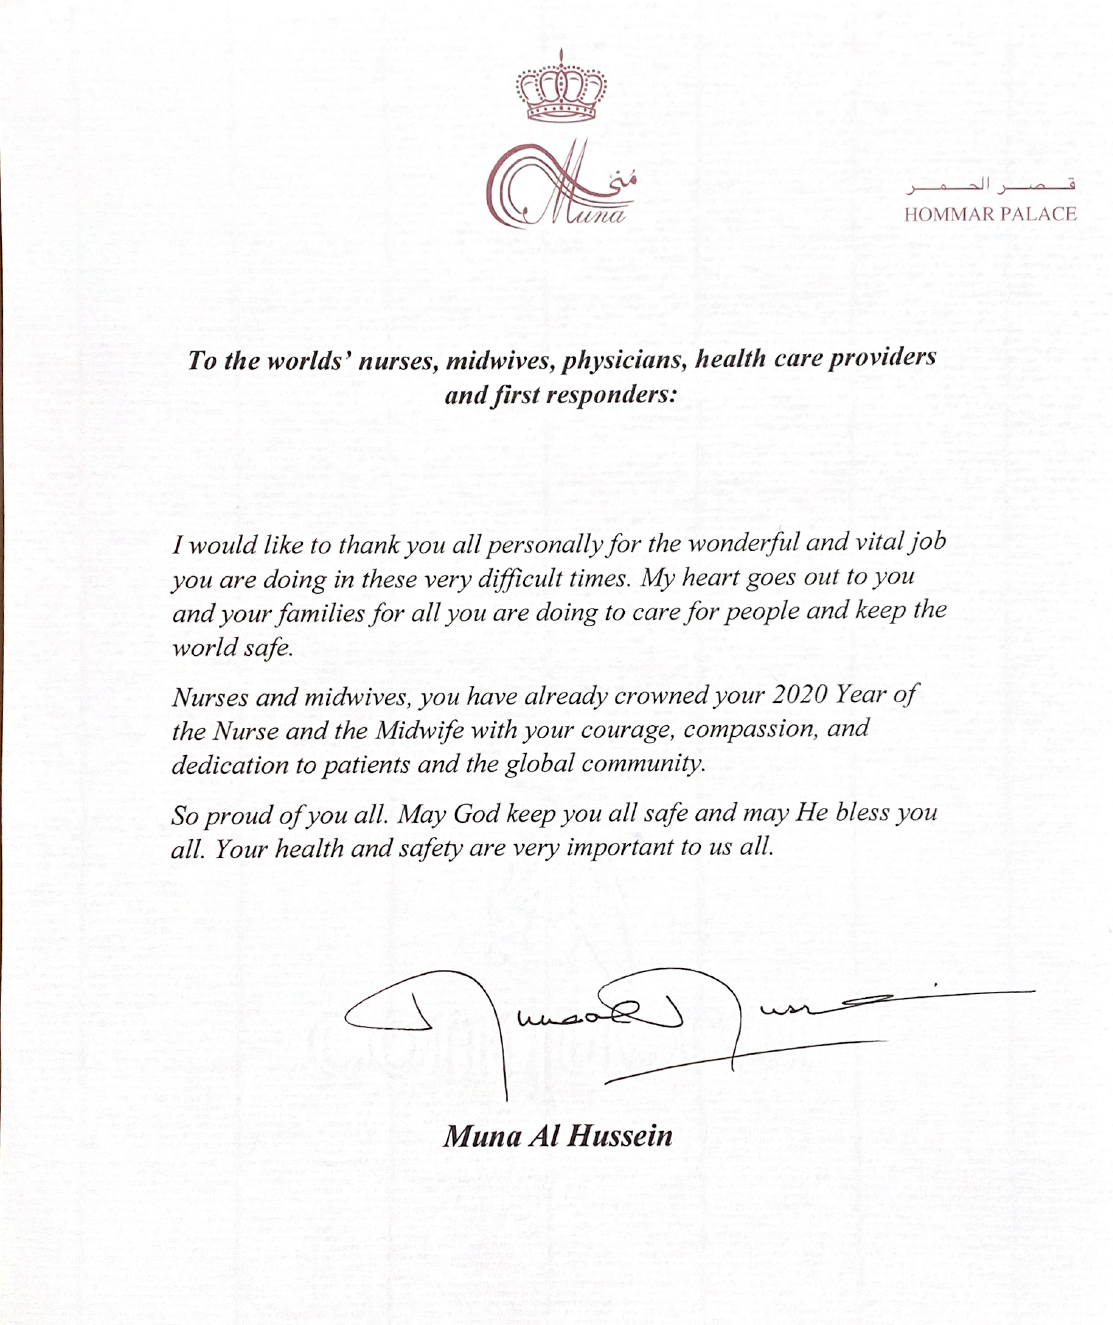 مُنى
Muna
قصر الحمر
HOMMAR PALACE
To the worlds’ nurses, midwives, physicians, health care providers
and first responders:
I would like to thank you all personally for the wonderful and vital job
you are doing in these very difficult times. My heart goes out to you
and your families for all you are doing to care for people and keep the
world safe.
Nurses and midwives, you have already crowned your 2020 Year of
the Nurse and the Midwife with your courage, compassion, and
dedication to patients and the global community.
So proud of you all. May God keep you all safe and may He bless you
all. Your health and safety are very important to us all.
Muna Al Hussein
Muna Al Hussein